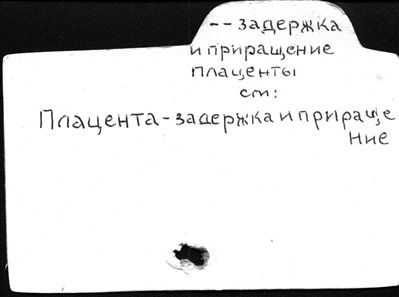 -- задержка
и приращение
плаценты
см:
Плацента-задержка и прираще
ние